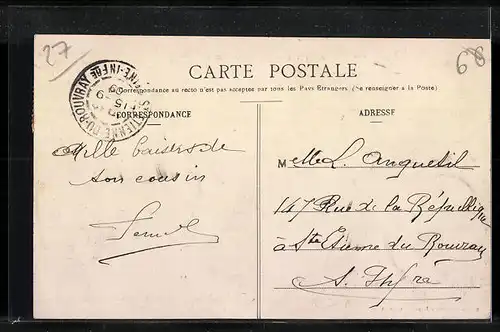 27
68
CARTE POSTALE
La Correspondance au recto n'est pas acceptée par tous les Pays Étrangers. (Se renseigner à la Poste)
CORRESPONDANCE
ADRESSE
Mille baisers de
son cousin
Melle L. Anquetil
147 Rue de la République
à Ste Etienne du Rouvray
S. Infre